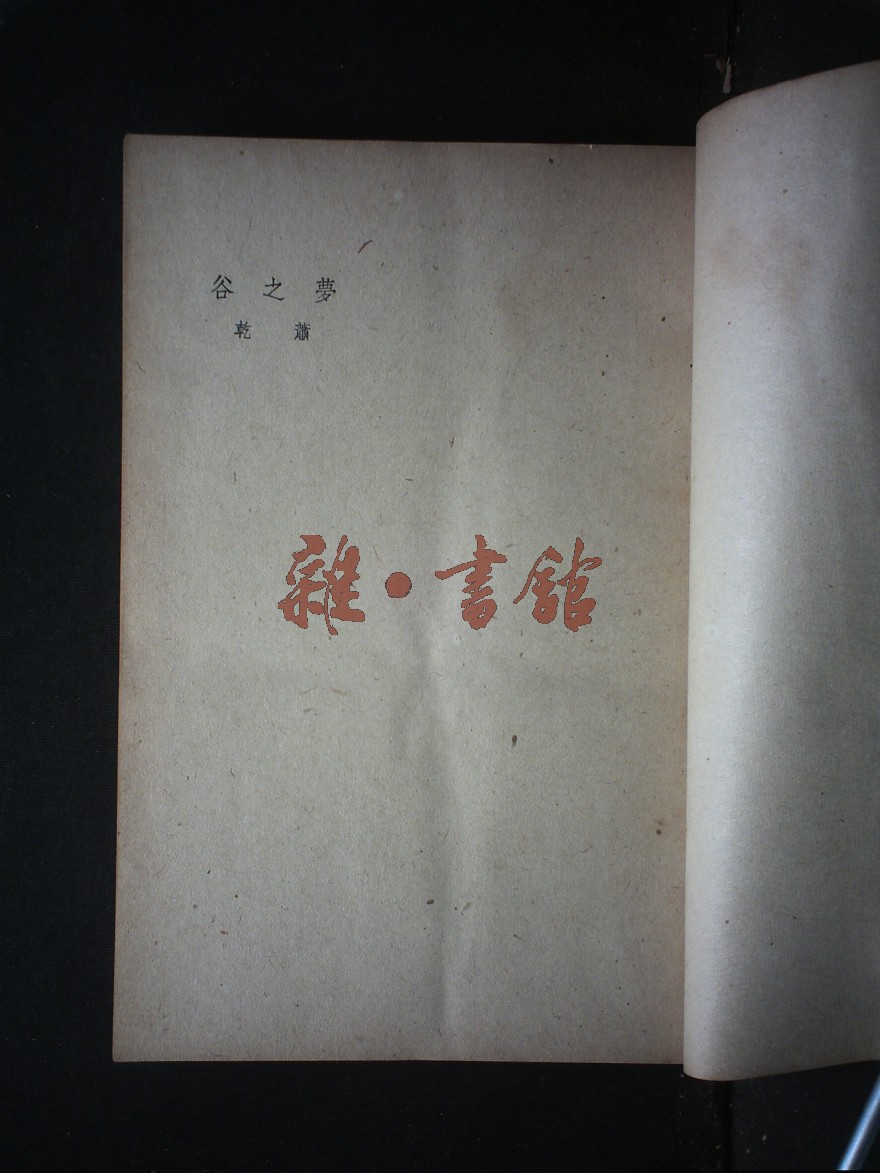 夢之谷
蕭乾
雜·書館